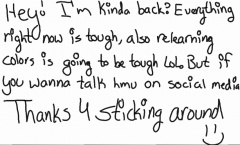 Hey! I'm kinda back? Everything
right now is tough, also relearning
colors is going to be tough lol. But if
you wanna talk hmu on social media
Thanks 4 sticking around
:)